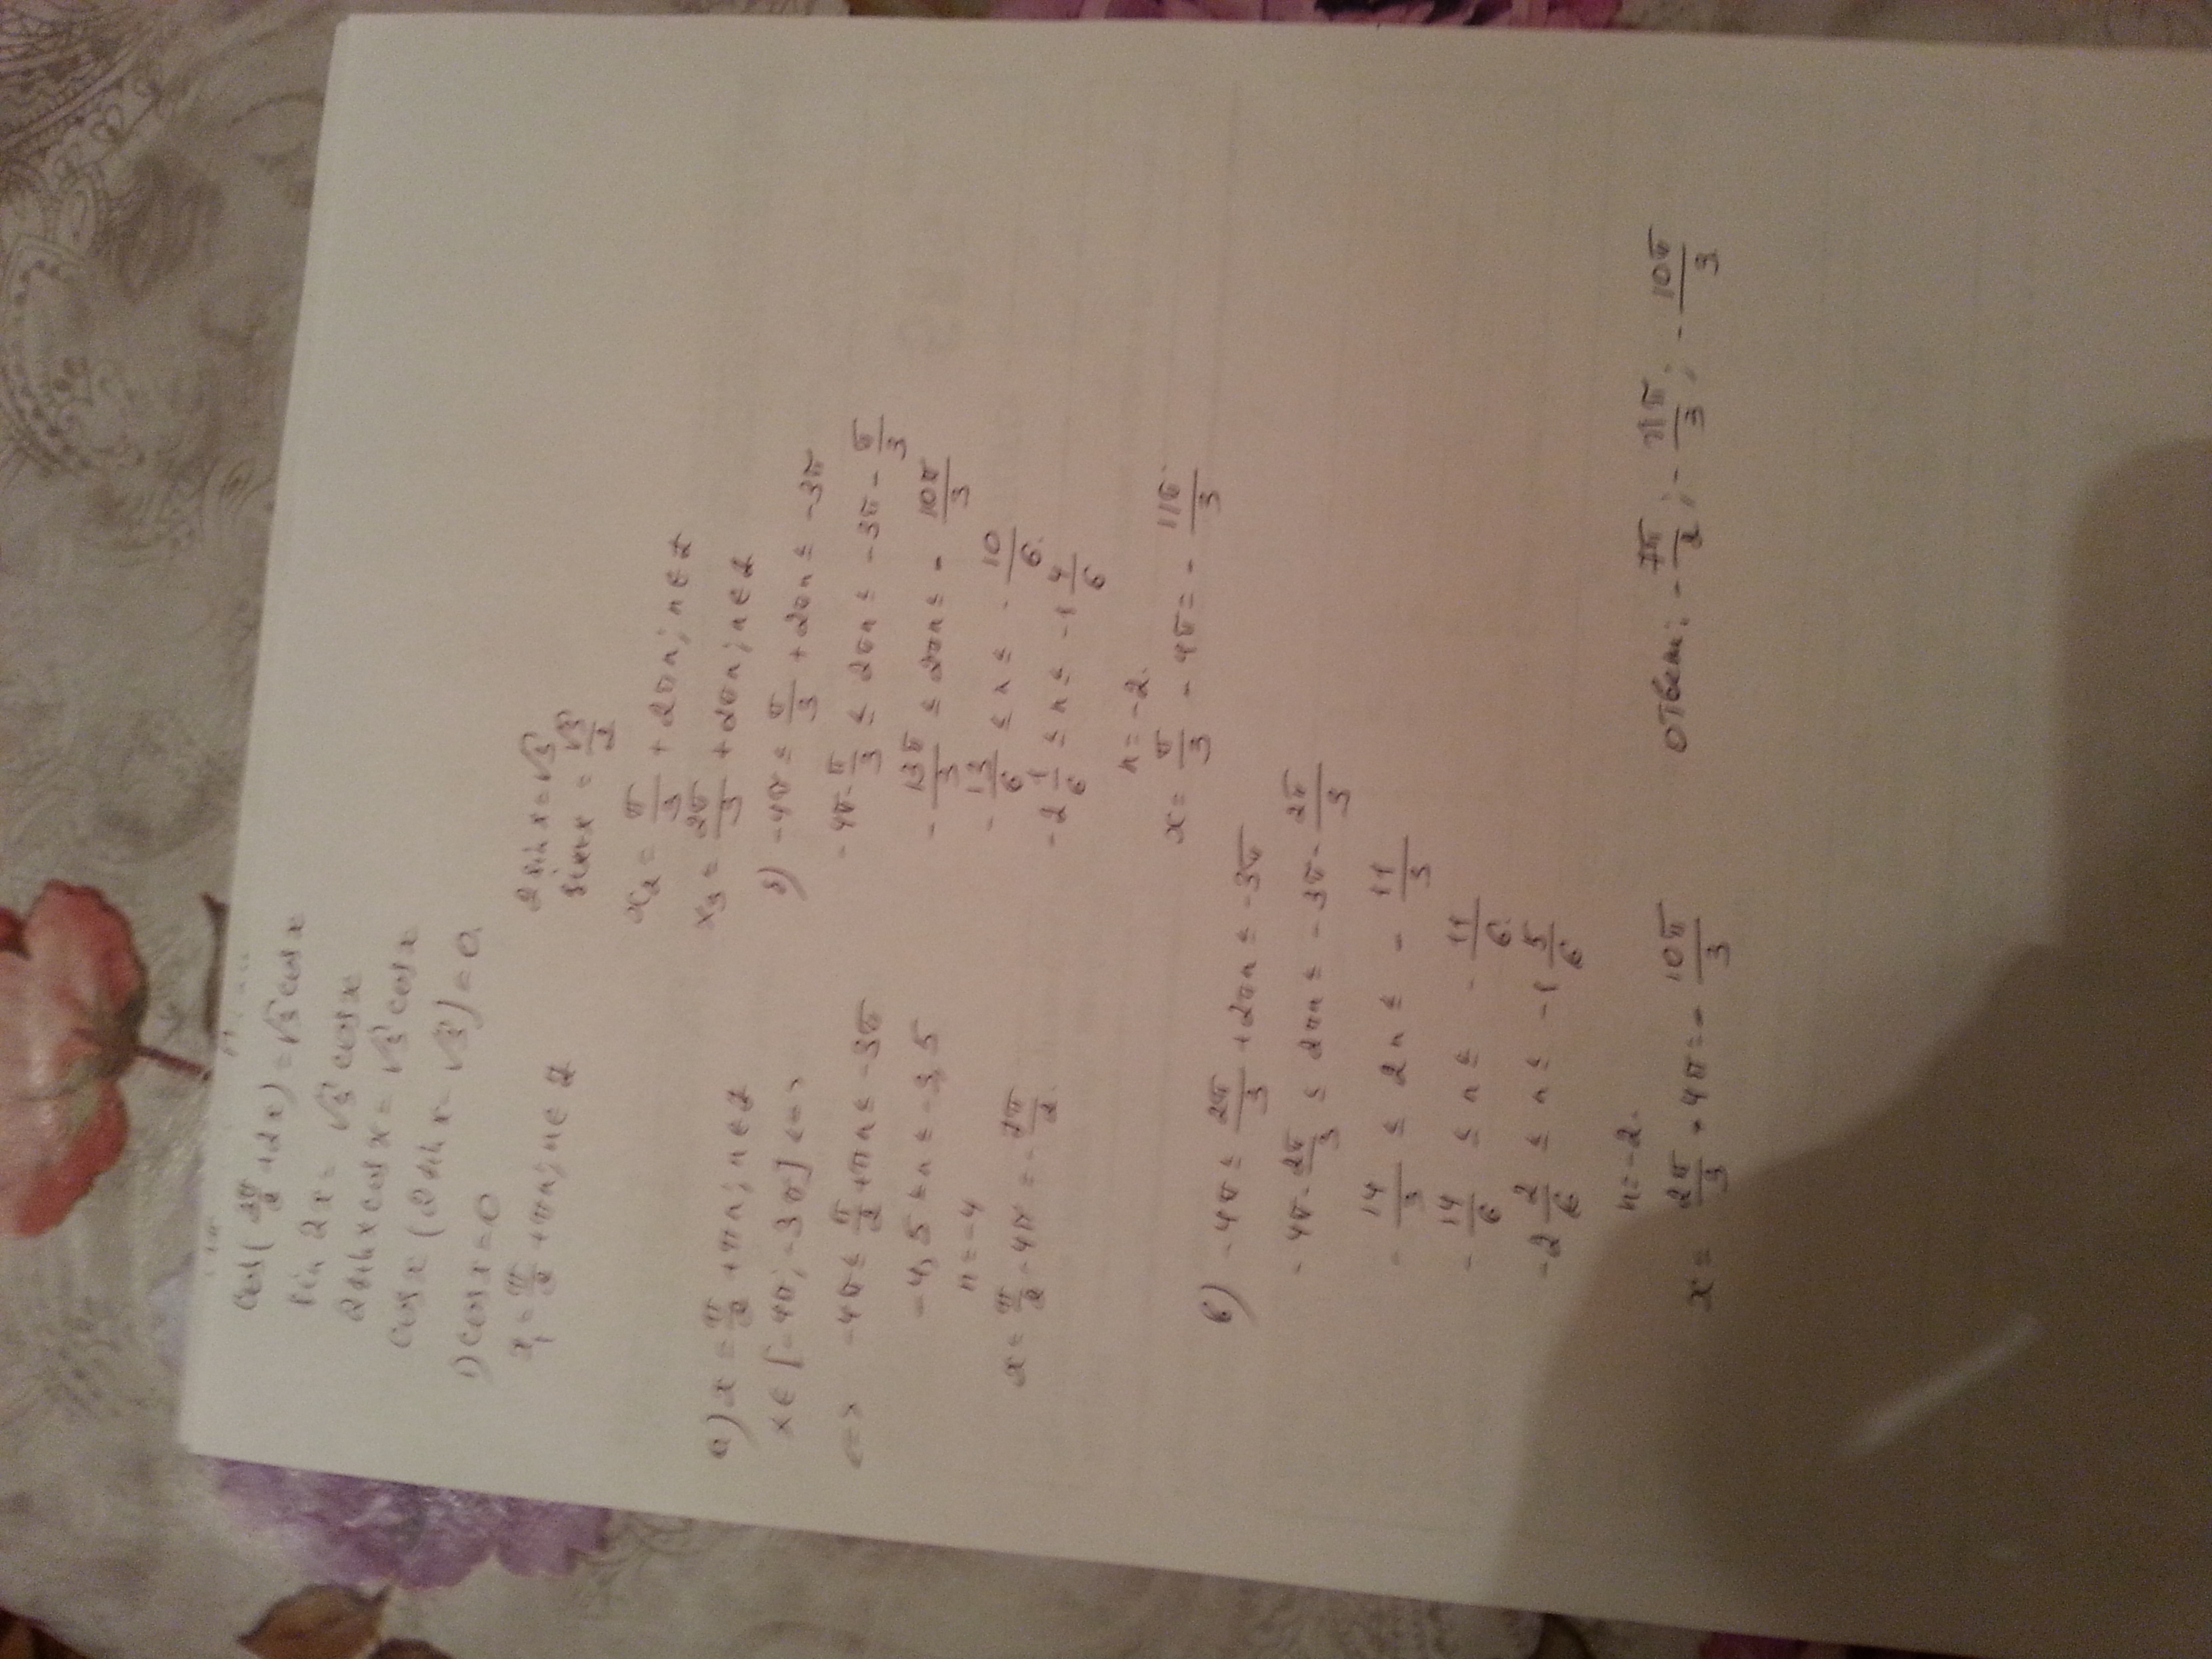 cos(3π/2 + 2x) = √3 cos x
sin 2x = √3 cos x
2 sin x cos x = √3 cos x
cos x (2 sin x - √3) = 0.
1) cos x = 0
x₁ = π/2 + πn; n ∈ Z
2 sin x = √3
sin x = √3/2
x₂ = π/3 + 2πn; n ∈ Z
x₃ = 2π/3 + 2πn; n ∈ Z
а) x = π/2 + πn; n ∈ Z
x ∈ [-4π; -3π] <=>
<=> -4π ≤ π/2 + πn ≤ -3π
-4,5 ≤ n ≤ -3,5
n = -4
x = π/2 - 4π = -7π/2.
б) -4π ≤ π/3 + 2πn ≤ -3π
-4π - π/3 ≤ 2πn ≤ -3π - π/3
-13π/3 ≤ 2πn ≤ -10π/3
-13/6 ≤ n ≤ -10/6.
-2 1/6 ≤ n ≤ -1 4/6
n = -2.
x = π/3 - 4π = -11π/3
в) -4π ≤ 2π/3 + 2πn ≤ -3π
-4π - 2π/3 ≤ 2πn ≤ -3π - 2π/3
-14/3 ≤ 2n ≤ -11/3
-14/6 ≤ n ≤ -11/6.
-2 2/6 ≤ n ≤ -1 5/6
n = -2.
x = 2π/3 - 4π = -10π/3
Ответ: -7π/2; -11π/3; -10π/3